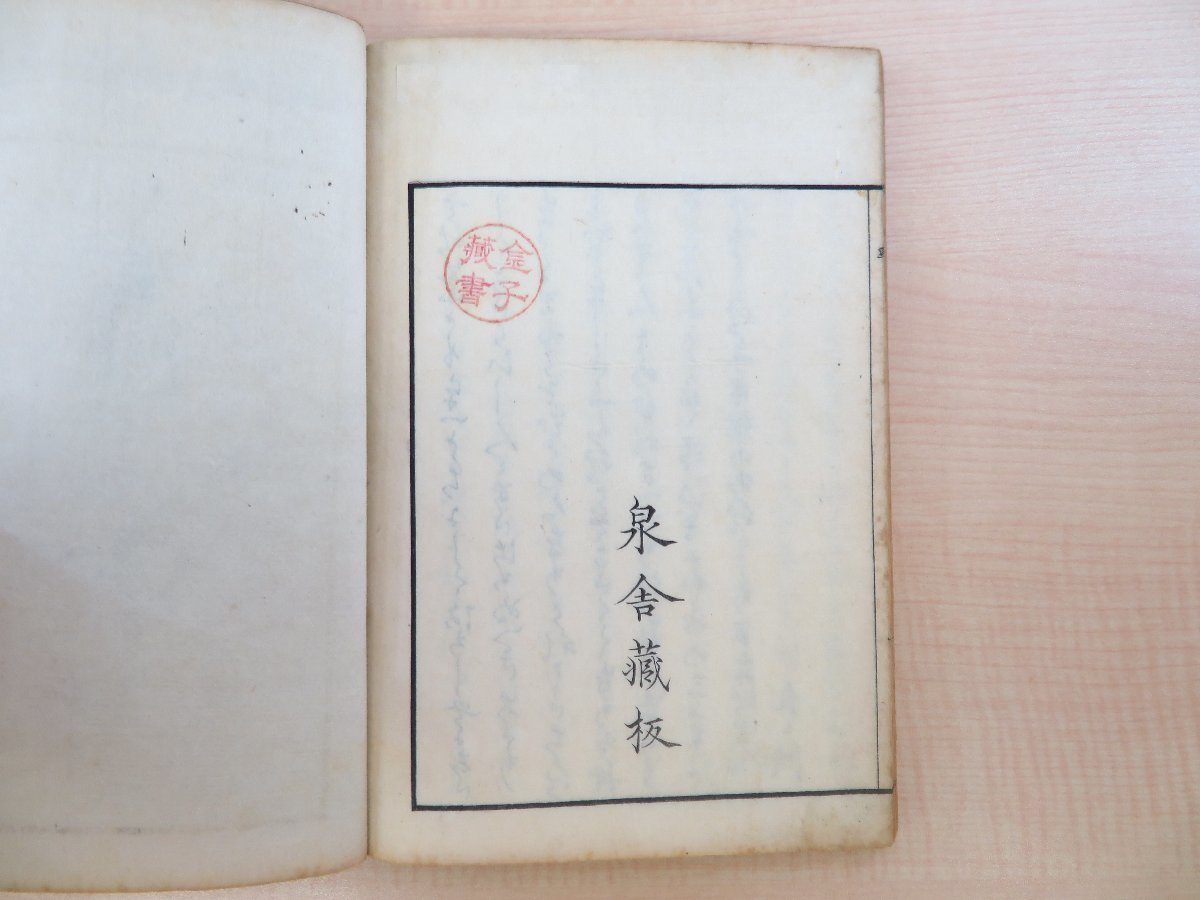 金子
藏書
泉舎藏板